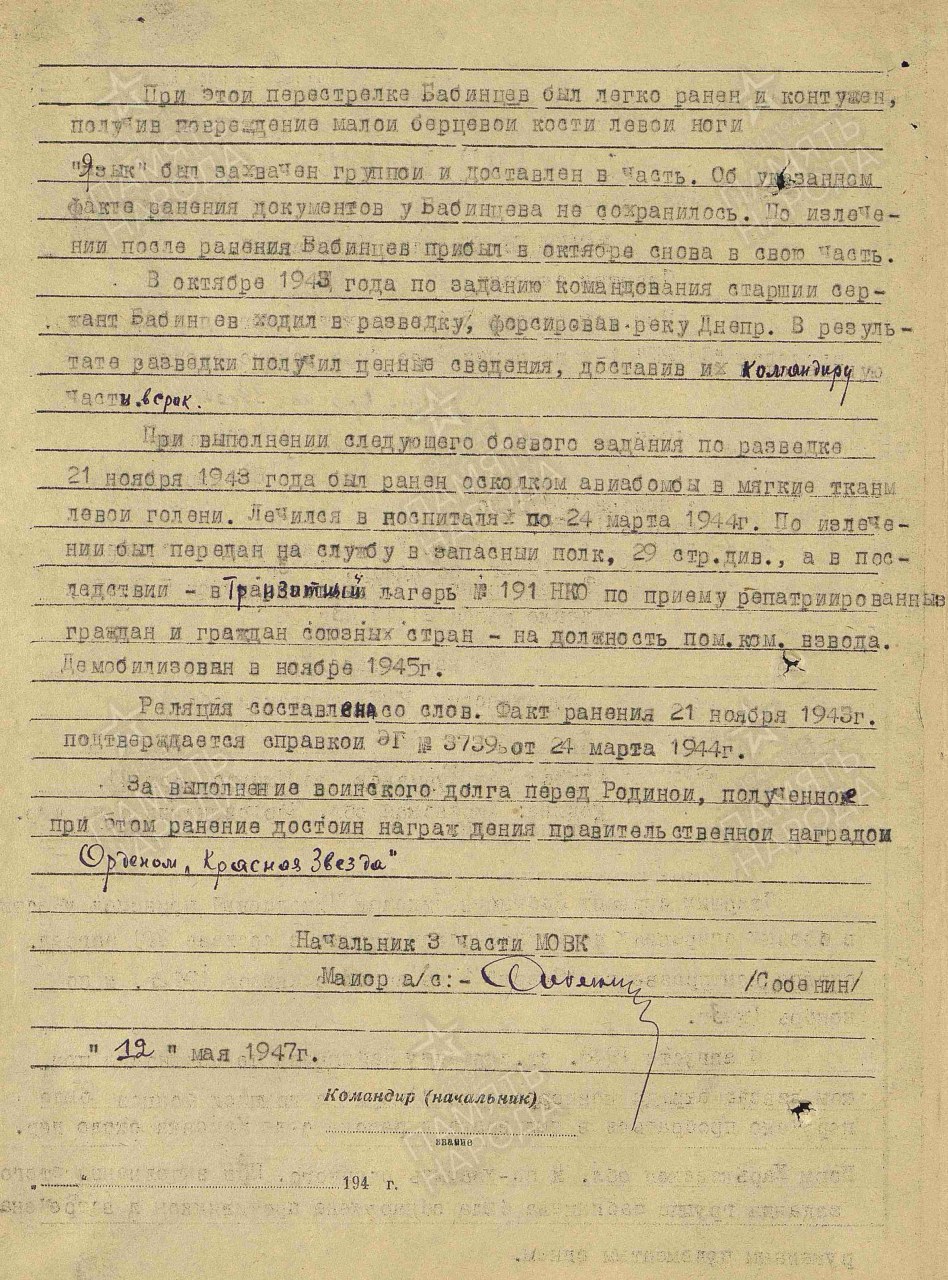 При этои перестрелке Бабинцев был легко ранен и контужен,
получив повреждение малои берцевои кости левои ноги
"Язык" был захвачен группои и доставлен в часть. Об указанном
факте ранения документов у Бабинцева не сохранилось. По излече-
нии после ранения Бабинцев прибыл в октябре снова в свою часть.
В октябре 1943 года по заданию командования старшии сер-
жант Бабинцев ходил в разведку, форсировав реку Днепр. В резуль-
тате разведки получил ценные сведения, доставив их командиру
части в срок.
При выполнении следующего боевого задания по разведке
21 ноября 1943 года был ранен осколком авиабомбы в мягкие ткани
левои голени. Лечился в госпиталях по 24 марта 1944г. По излече-
нии был передан на службу в запасныи полк, 29 стр.див., а в пос-
ледствии - в Транзитный лагерь № 191 НКО по приему репатриированных
граждан и граждан союзных стран - на должность пом.ком. взвода.
Демобилизован в ноябре 1945г.
Реляция составлена со слов. Факт ранения 21 ноября 1943г.
подтверждается справкои ЭГ № 3739 от 24 марта 1944г.
За выполнение воинского долга перед Родинои, полученное
при этом ранение достоин награж дения правительственнои наградои
Орденом „Красная Звезда"
Начальник 3 части МОВК
Маиор а/с:- /Собенин/
" 12 " мая 1947г.
Командир (начальник)
звание
„ " 194 г.
ПАМЯТЬ НАРОДА